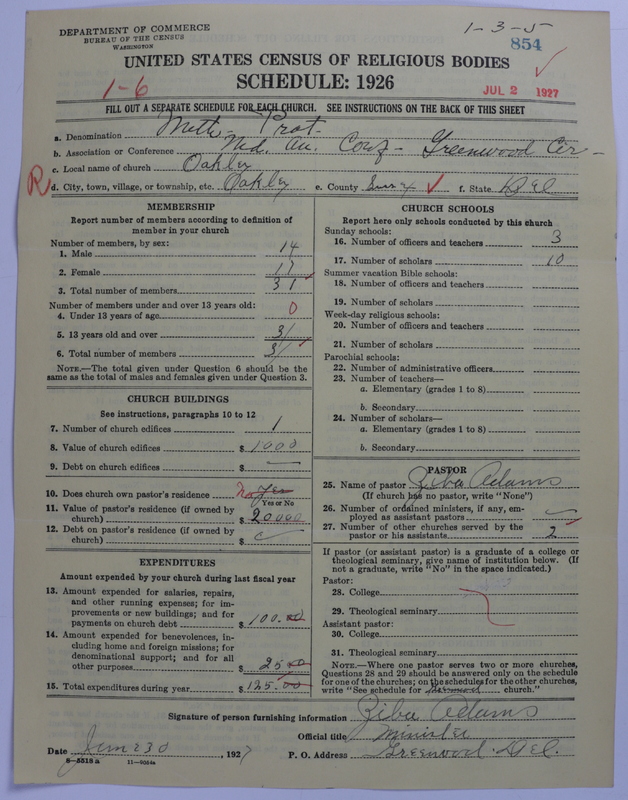 DEPARTMENT OF COMMERCE
BUREAU OF THE CENSUS
WASHINGTON
1-3-5
854
UNITED STATES CENSUS OF RELIGIOUS BODIES
SCHEDULE: 1926
1-6
JUL 2 1927
FILL OUT A SEPARATE SCHEDULE FOR EACH CHURCH. SEE INSTRUCTIONS ON THE BACK OF THIS SHEET
a. Denomination Meth- Prot-
b. Association or Conference Md. An. Conf- Greenwood Cir-
c. Local name of church Oakley
R d. City, town, village, or township, etc. Oakley e. County f. State Del
MEMBERSHIP
Report number of members according to definition of
member in your church
Number of members, by sex:
1. Male 14
2. Female 17
3. Total number of members 31
Number of members under and over 13 years old:
4. Under 13 years of age 0
5. 13 years old and over 31
6. Total number of members 31
NOTE.—The total given under Question 6 should be
same as the total of males and females given under Question 3.
CHURCH BUILDINGS
See instructions, paragraphs 10 to 12
7. Number of church edifices 1
8. Value of church edifices $ 1000
9. Debt on church edifices $ —
10. Does church own pastor's residence No Yes
Yes or No
11. Value of pastor's residence (if owned by
church) $ 2000
12. Debt on pastor's residence (if owned by
church) $
EXPENDITURES
Amount expended by your church during last fiscal year
13. Amount expended for salaries, repairs,
and other running expenses; for im-
provements or new buildings; and for
payments on church debt $ 100.00
14. Amount expended for benevolences, in-
cluding home and foreign missions; for
denominational support; and for all
other purposes $ 25.00
15. Total expenditures during year $ 125.00
CHURCH SCHOOLS
Report here only schools conducted by this church
Sunday schools:
16. Number of officers and teachers 3
17. Number of scholars 10
Summer vacation Bible schools:
18. Number of officers and teachers
19. Number of scholars
Week-day religious schools:
20. Number of officers and teachers
21. Number of scholars
Parochial schools:
22. Number of administrative officers
23. Number of teachers—
a. Elementary (grades 1 to 8)
b. Secondary
24. Number of scholars—
a. Elementary (grades 1 to 8)
b. Secondary
PASTOR
25. Name of pastor Ziba Adams
(If church has no pastor, write "None")
26. Number of ordained ministers, if any, em-
ployed as assistant pastors
27. Number of other churches served by the
pastor or his assistants 2
If pastor (or assistant pastor) is a graduate of a college or
theological seminary, give name of institution below. (If
not a graduate, write "No" in the space indicated.)
Pastor:
28. College
29. Theological seminary
Assistant pastor:
30. College
31. Theological seminary
NOTE.—Where one pastor serves two or more churches,
Questions 28 and 29 should be answered only on the schedule
for one of the churches; on the schedules for the other churches,
write "See schedule for church."
Signature of person furnishing information Ziba Adams
Official title Minister
Date June 30, 1927 P. O. Address Greenwood Del.
8—5518 a 11—9054a